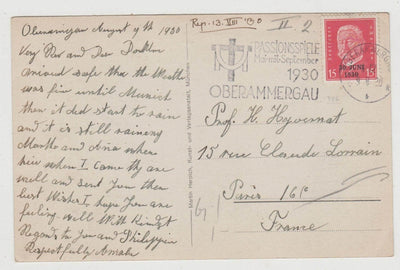 Oberamergau August 9th 1930
Very Rev and Dear Doctor
arrived safe the Weath
was fine until Munich
then it did start to rain
and it is still raining
Martha and Ana where
hier when I came thy are
well and send you then
best Wishes I hope you are
feeling well With Kindst
Regards to you and Philippin
Respectfully Amalie
Martin Herpich, Kunst- und Verlagsanstalt, München
Rep. 13. VIII '30
II 2
PASSIONSSPIELE
Mai mit September
1930
OBERAMMERGAU
15 15
30. JUNI
1930
Prof. H. Hyvernat
15 rue Claude Lorrain
Paris 16e
France